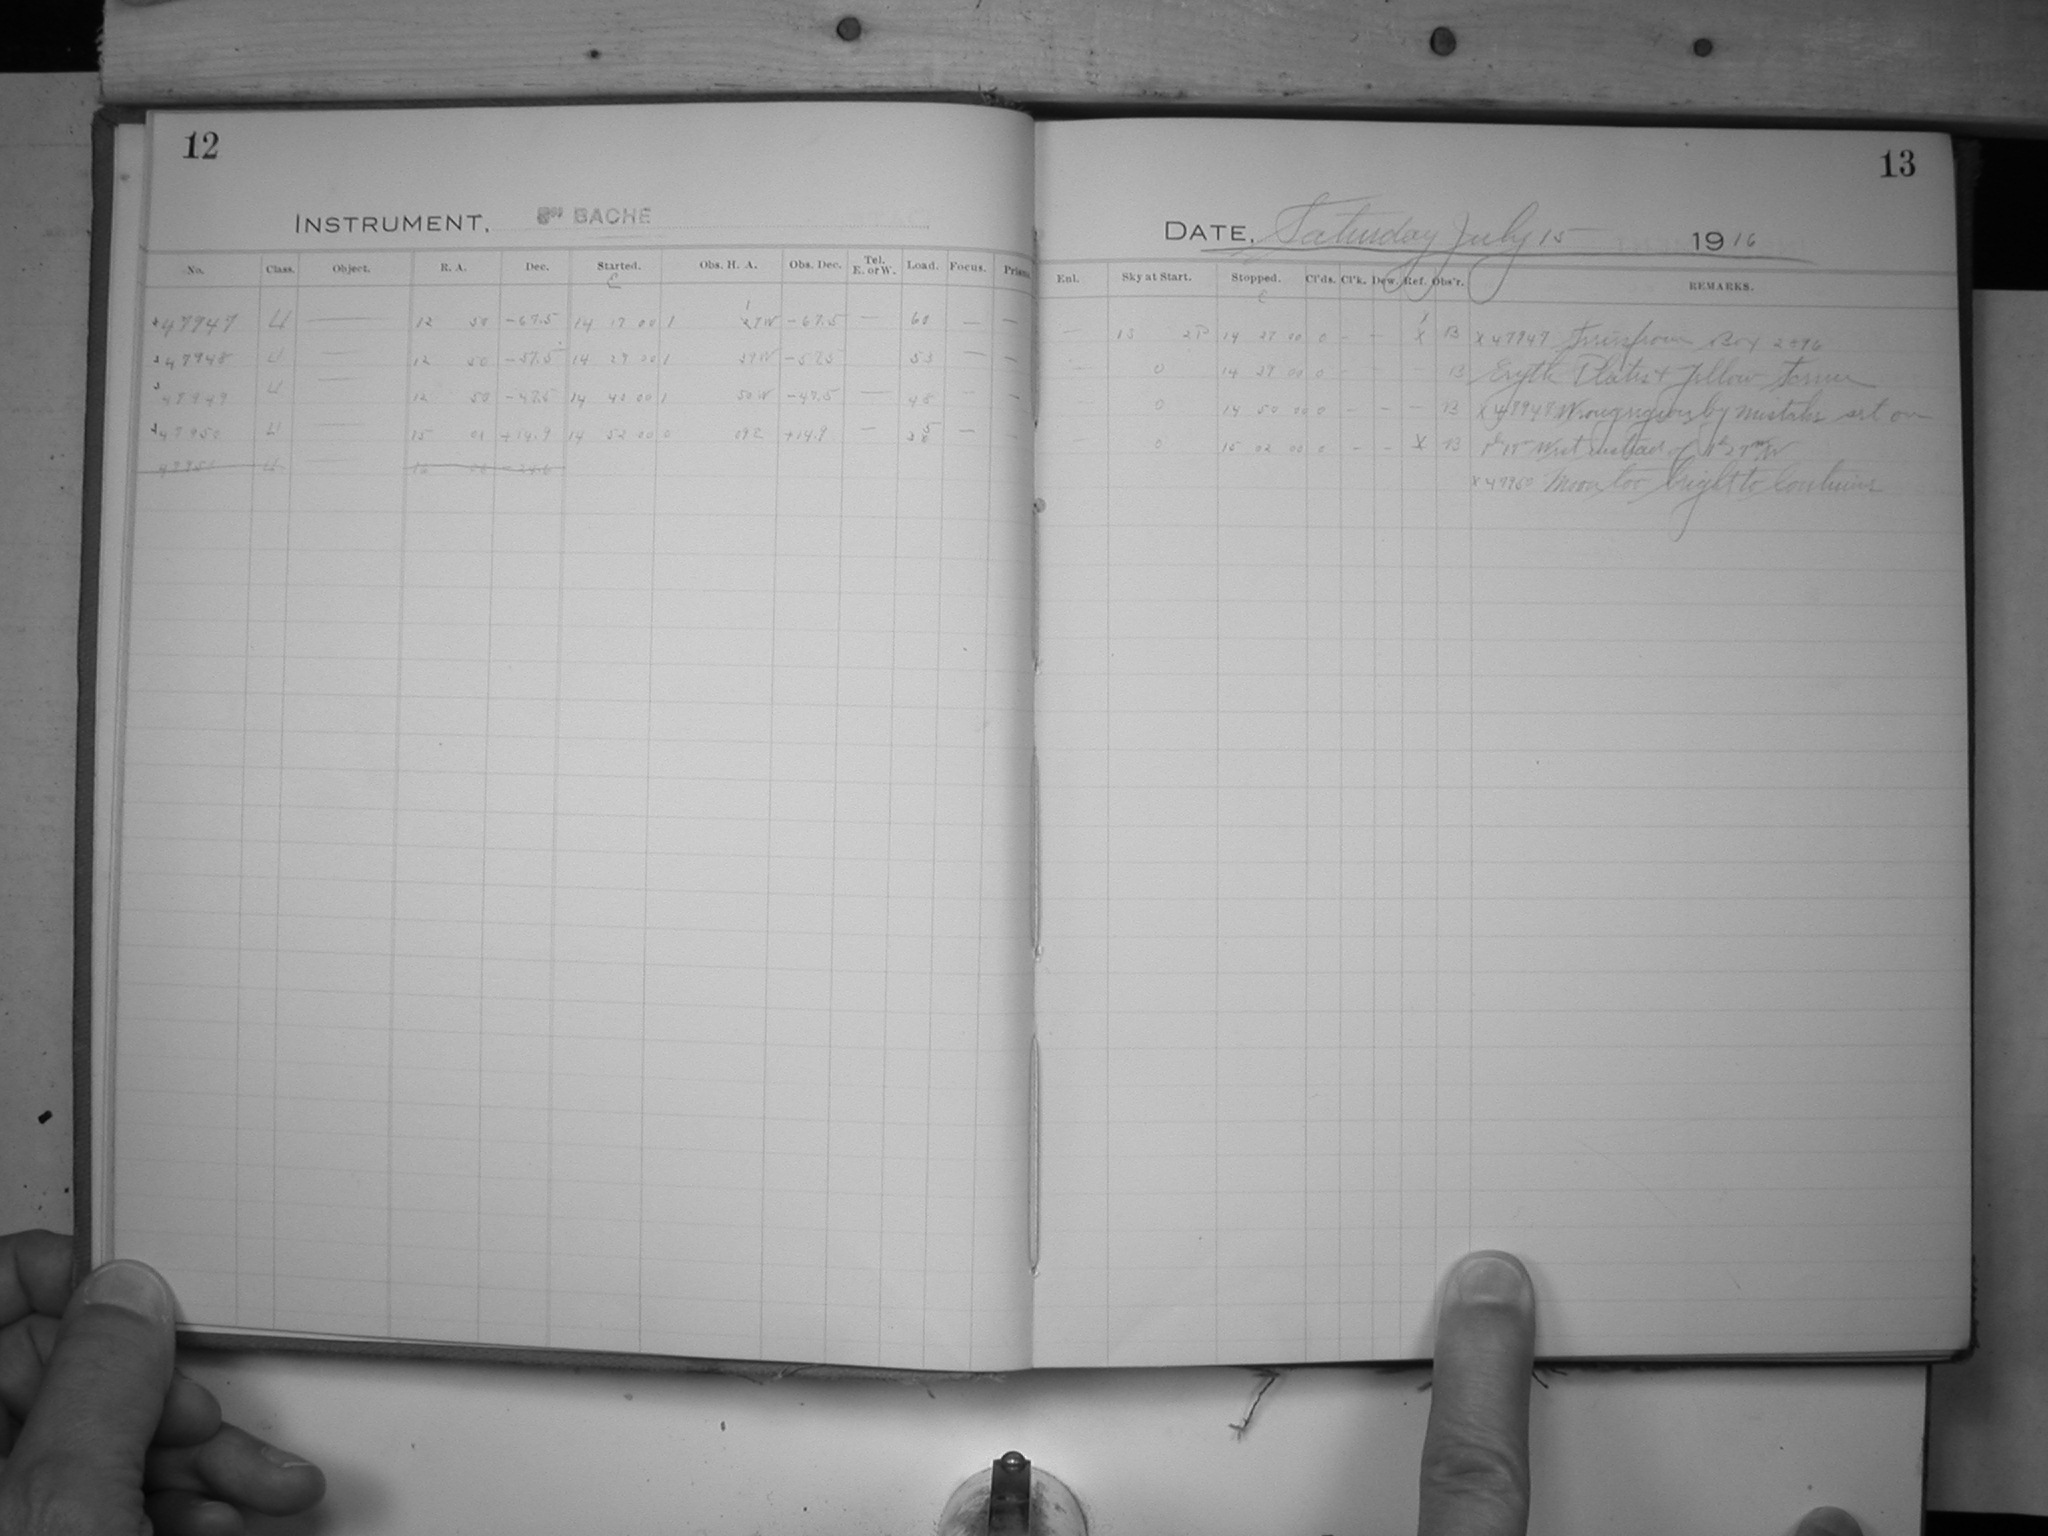 12
INSTRUMENT. 8" BACHE
No. Class. Object. R. A. Dec. Started. Obs. H. A. Obs. Dec. Tel. E. or W. Load. Focus. Prism
E
47947 U — 12 50 -67.5 14 17 00 1 27W -67.5 — 60 — —
47948 U — 12 50 -57.5 14 29 00 1 39W -57.5 53 — —
47949 U — 12 50 -47.5 14 40 00 1 50W -47.5 — 48 — —
47950 U — 15 01 +14.9 14 52 00 0 09E +14.9 — — —
47951 U
13
DATE. Saturday July 15 1916
Enl. Sky at Start. Stopped. Cl'ds. Cl'k. Dew. Ref. Obs'r. REMARKS.
E
— 13 2P 14 27 00 0 - - X B X 47947 from Box
— 0 14 39 00 0 - - - B Eryth Plates + Yellow
— 0 14 50 00 0 - - - B X 47947 Wrong region by mistake set on
— 0 15 02 00 0 - - X B West instead of 1h 27m W
X 47950 Moon too bright to continue